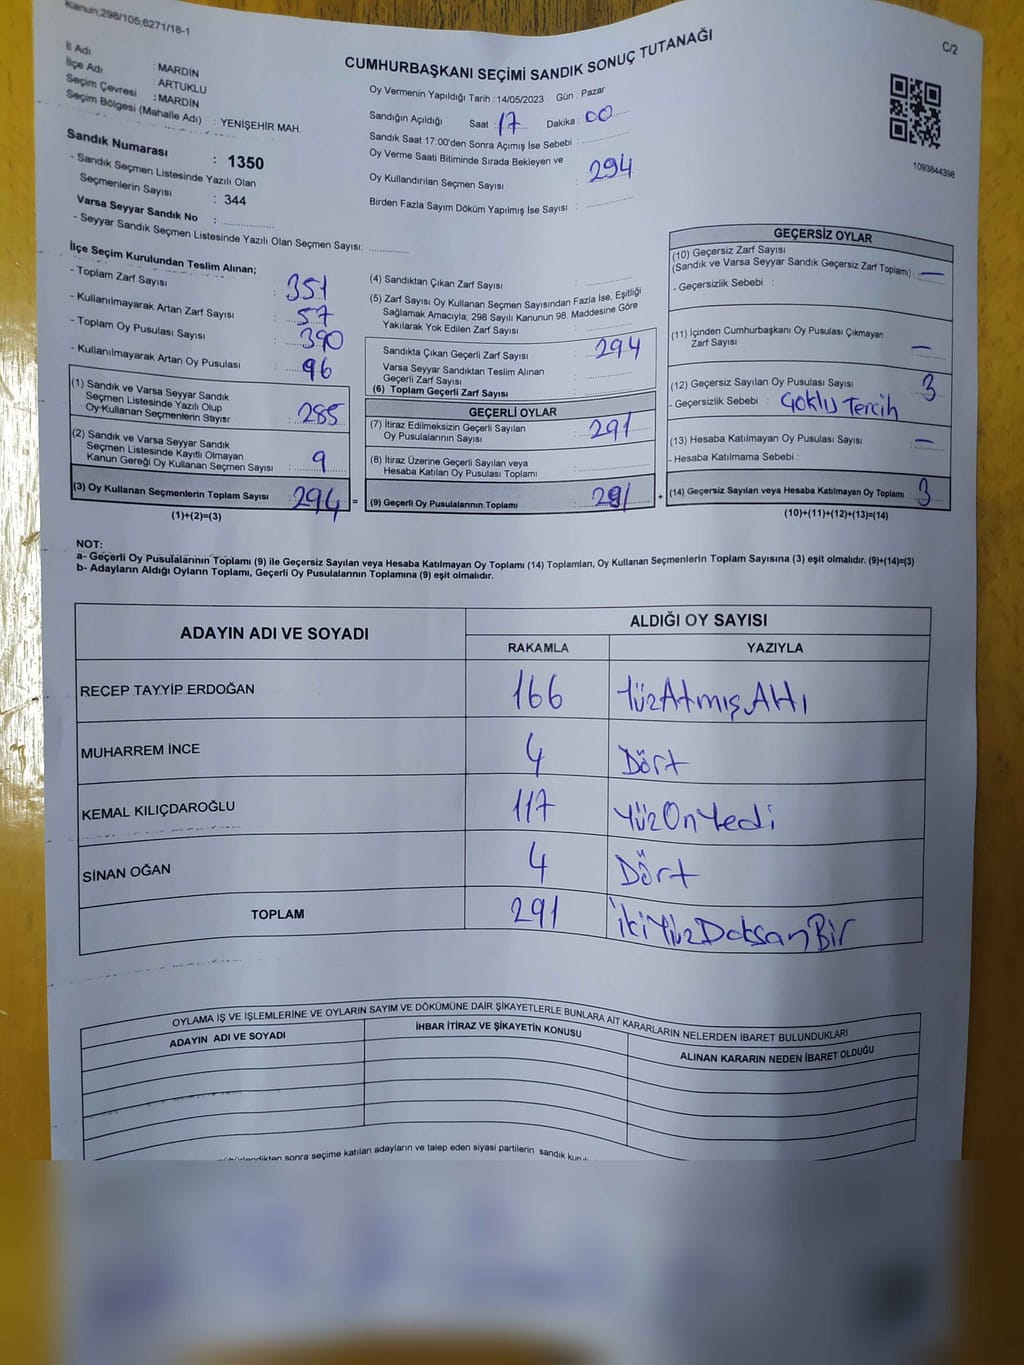 Kanun:298/105,6271/18-1
C/2
CUMHURBAŞKANI SEÇİMİ SANDIK SONUÇ TUTANAĞI
İl Adı : MARDİN
İlçe Adı : ARTUKLU
Seçim Çevresi : MARDİN
Seçim Bölgesi (Mahalle Adı) : YENİŞEHİR MAH.
Sandık Numarası : 1350
- Sandık Seçmen Listesinde Yazılı Olan
Seçmenlerin Sayısı : 344
Varsa Seyyar Sandık No :
- Seyyar Sandık Seçmen Listesinde Yazılı Olan Seçmen Sayısı:
Oy Vermenin Yapıldığı Tarih :14/05/2023 Gün : Pazar
Sandığın Açıldığı Saat : 17 Dakika : 00
Sandık Saat 17:00'den Sonra Açımış İse Sebebi :
Oy Verme Saati Bitiminde Sırada Bekleyen ve
Oy Kullandırılan Seçmen Sayısı : 294
Birden Fazla Sayım Döküm Yapılmış İse Sayısı :
1093844398
İlçe Seçim Kurulundan Teslim Alınan;
- Toplam Zarf Sayısı : 351
- Kullanılmayarak Artan Zarf Sayısı : 57
- Toplam Oy Pusulası Sayısı : 390
- Kullanılmayarak Artan Oy Pusulası : 96
(1) Sandık ve Varsa Seyyar Sandık
Seçmen Listesinde Yazılı Olup
Oy Kullanan Seçmenlerin Sayısı : 285
(2) Sandık ve Varsa Seyyar Sandık
Seçmen Listesinde Kayıtlı Olmayan
Kanun Gereği Oy Kullanan Seçmen Sayısı : 9
(3) Oy Kullanan Seçmenlerin Toplam Sayısı : 294 =
(1)+(2)=(3)
(4) Sandıktan Çıkan Zarf Sayısı :
(5) Zarf Sayısı Oy Kullanan Seçmen Sayısından Fazla İse, Eşitliği
Sağlamak Amacıyla; 298 Sayılı Kanunun 98. Maddesine Göre
Yakılarak Yok Edilen Zarf Sayısı :
Sandıkta Çıkan Geçerli Zarf Sayısı : 294
Varsa Seyyar Sandıktan Teslim Alınan
Geçerli Zarf Sayısı :
(6) Toplam Geçerli Zarf Sayısı :
GEÇERLİ OYLAR
(7) İtiraz Edilmeksizin Geçerli Sayılan
Oy Pusulalarının Sayısı : 291
(8) İtiraz Üzerine Geçerli Sayılan veya
Hesaba Katılan Oy Pusulası Toplamı :
(9) Geçerli Oy Pusulalarının Toplamı : 291 +
GEÇERSİZ OYLAR
(10) Geçersiz Zarf Sayısı
(Sandık ve Varsa Seyyar Sandık Geçersiz Zarf Toplamı) : —
- Geçersizlik Sebebi :
(11) İçinden Cumhurbaşkanı Oy Pusulası Çıkmayan
Zarf Sayısı : —
(12) Geçersiz Sayılan Oy Pusulası Sayısı : 3
- Geçersizlik Sebebi : Çoklu Tercih
(13) Hesaba Katılmayan Oy Pusulası Sayısı : —
- Hesaba Katılmama Sebebi :
(14) Geçersiz Sayılan veya Hesaba Katılmayan Oy Toplamı : 3
(10)+(11)+(12)+(13)=(14)
NOT:
a- Geçerli Oy Pusulalarının Toplamı (9) ile Geçersiz Sayılan veya Hesaba Katılmayan Oy Toplamı (14) Toplamları, Oy Kullanan Seçmenlerin Toplam Sayısına (3) eşit olmalıdır. (9)+(14)=(3)
b- Adayların Aldığı Oyların Toplamı, Geçerli Oy Pusulalarının Toplamına (9) eşit olmalıdır.
ADAYIN ADI VE SOYADI ALDIĞI OY SAYISI
RAKAMLA YAZIYLA
RECEP TAYYİP ERDOĞAN 166 YüzAtmışAltı
MUHARREM İNCE 4 Dört
KEMAL KILIÇDAROĞLU 117 YüzOnYedi
SİNAN OĞAN 4 Dört
TOPLAM 291 İkiYüzDoksanBir
OYLAMA İŞ VE İŞLEMLERİNE VE OYLARIN SAYIM VE DÖKÜMÜNE DAİR ŞİKAYETLERLE BUNLARA AİT KARARLARIN NELERDEN İBARET BULUNDUKLARI
ADAYIN ADI VE SOYADI İHBAR İTİRAZ VE ŞİKAYETİN KONUSU ALINAN KARARIN NEDEN İBARET OLDUĞU
sonra seçime katılan adayların ve talep eden siyasi partilerin sandık